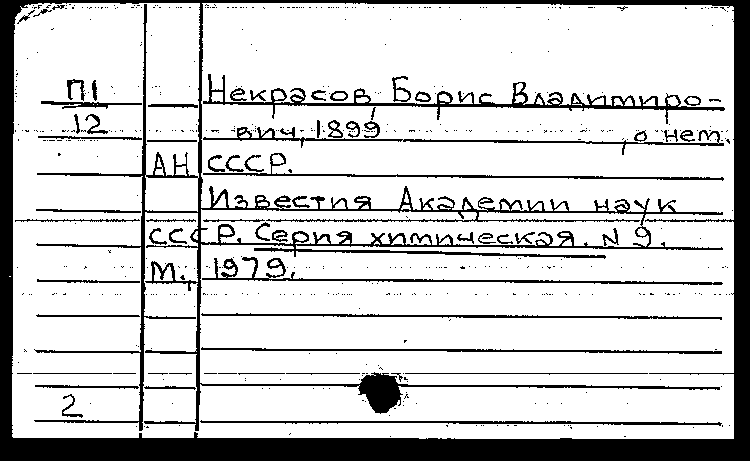 П1 Некрасов, Борис Владимиро-
12 вич, 1899 , о нем.
АН СССР.
Известия Академии наук
СССР. Серия химическая. N 9.
М., 1979.
2